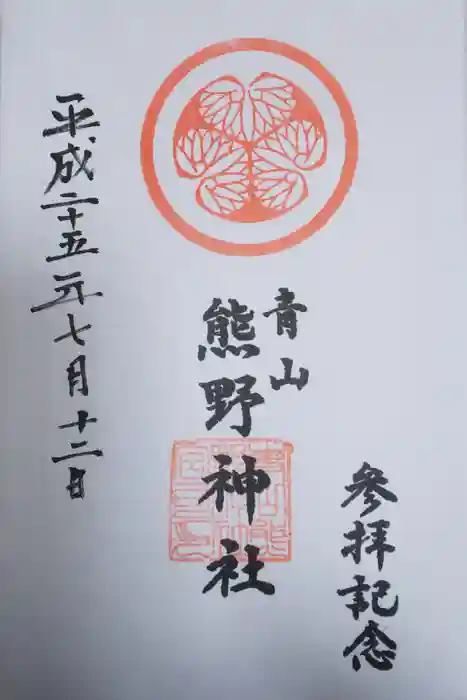 參拝記念
青山
熊野神社
平成二十五年七月十二日